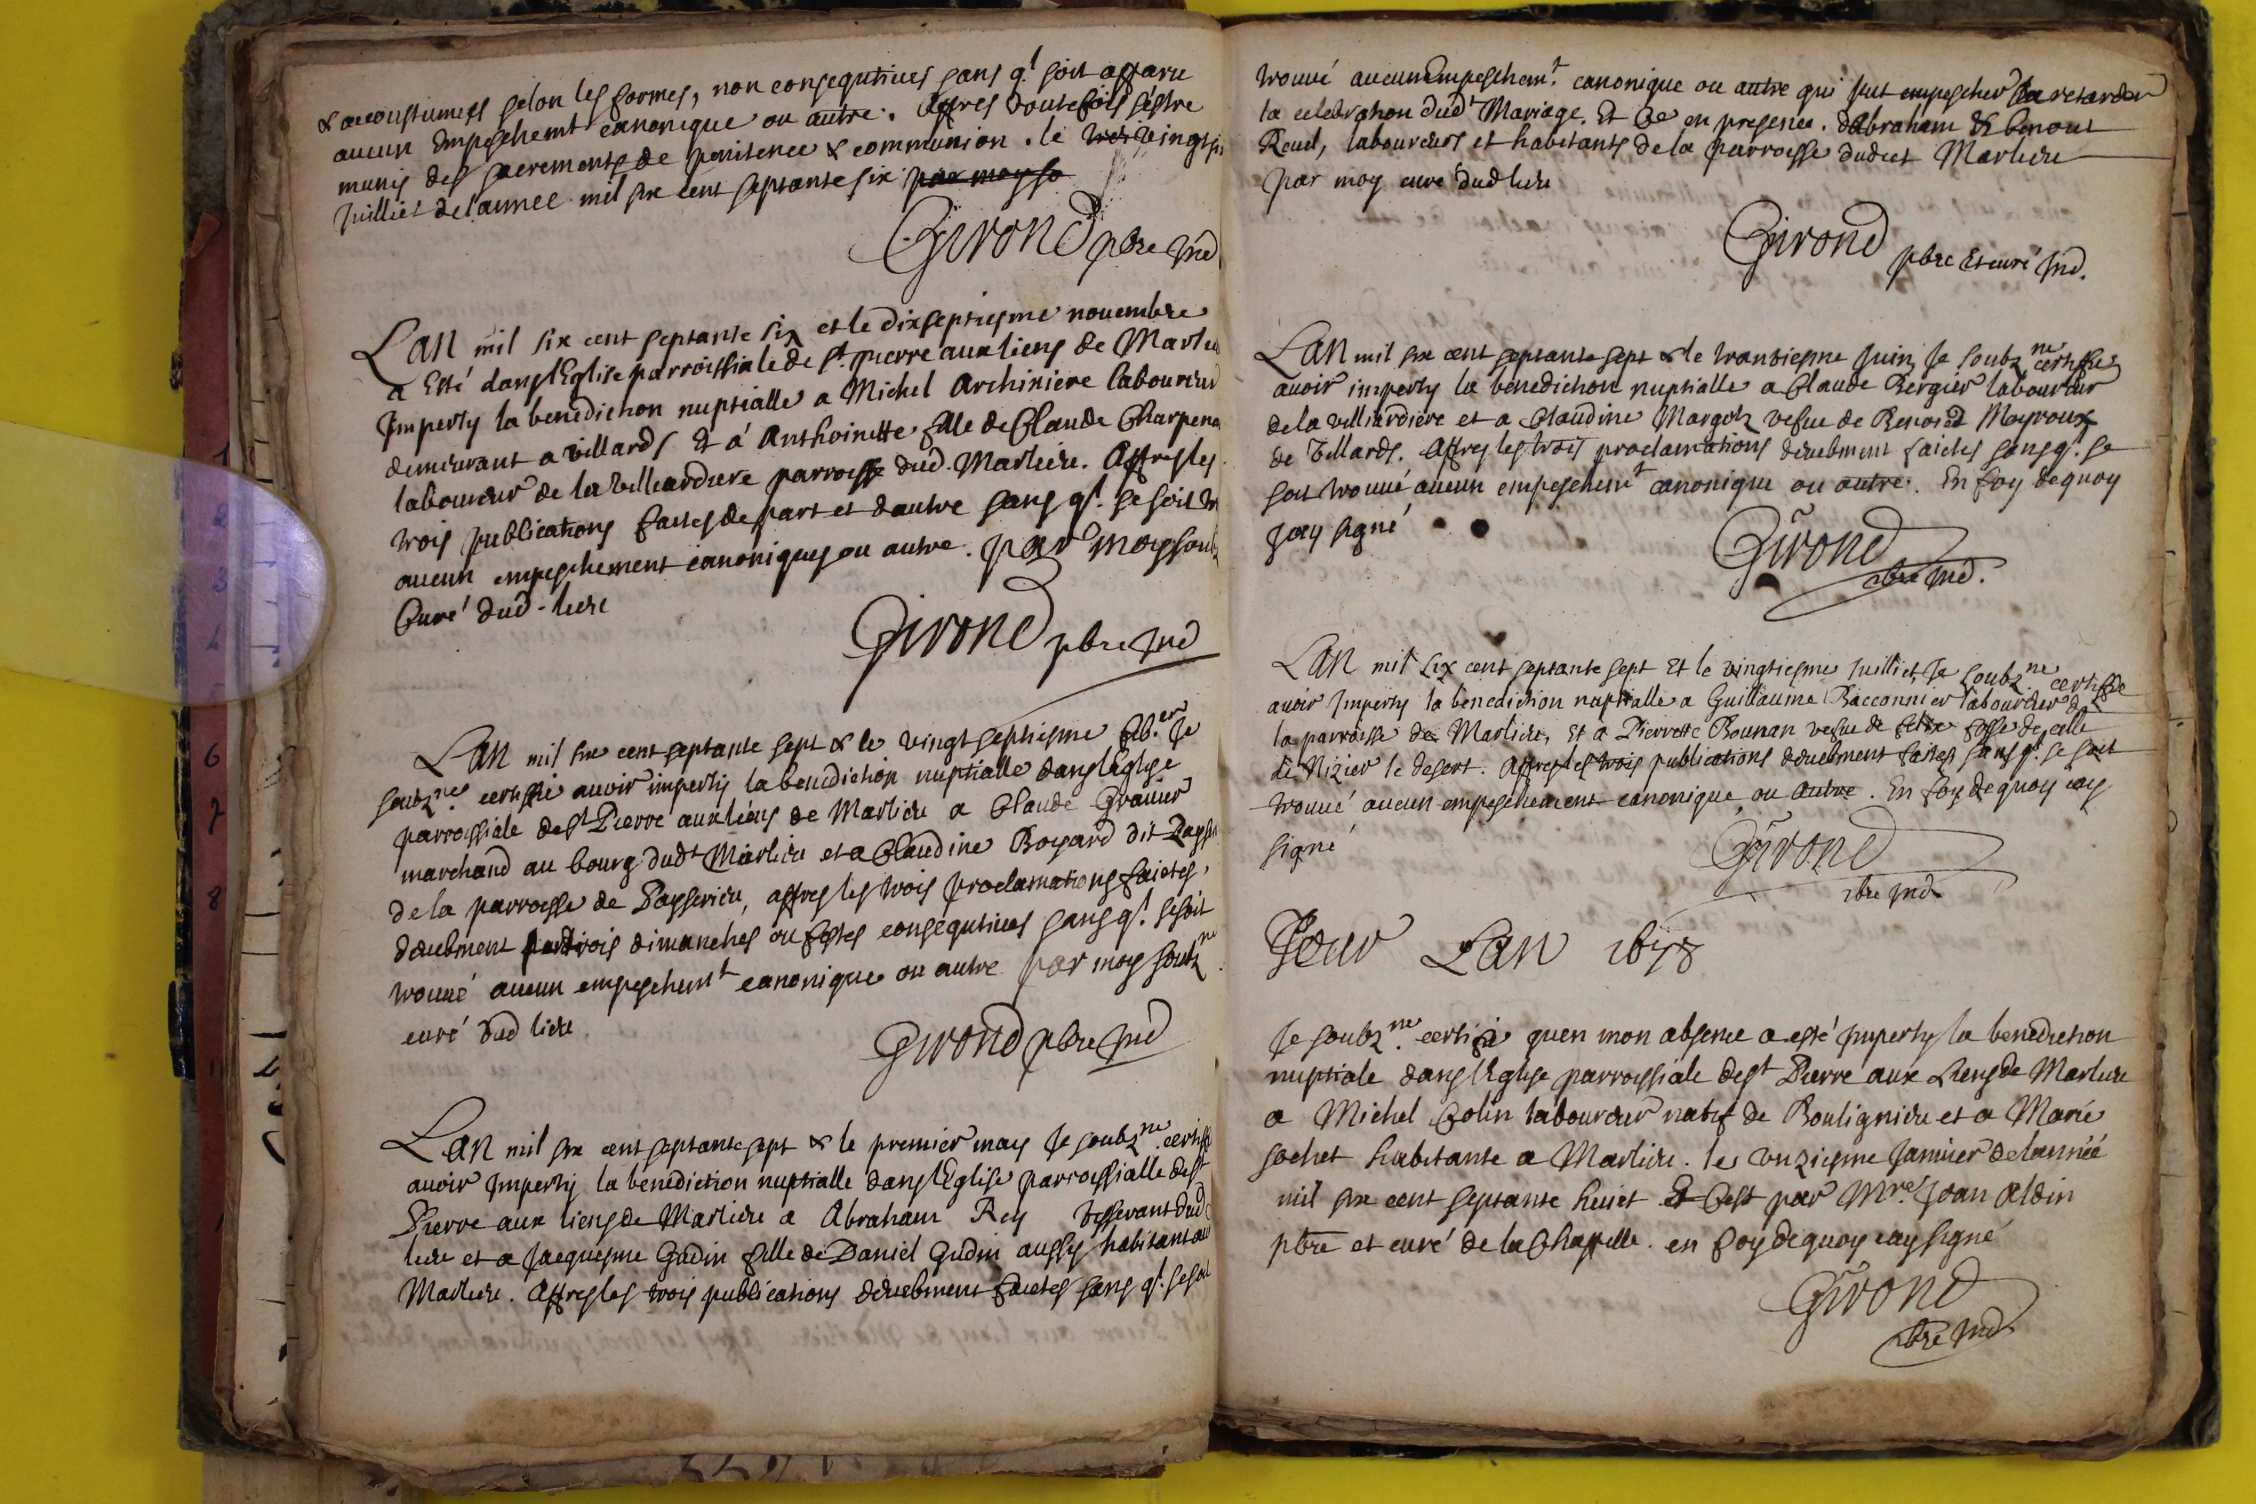 & accoustumees selon les formes, non consequtives sans q.l soit apparu
aucun Empeschemt canonique ou autre. Apres toutefois s'estre
munis des sacrements de penitence & communion. le vingt
Juillict de lannee mil six cent septante six par moy so
Girond pbre Jnd
Lan mil six cent septante six et le dixseptiesme novembre
a Esté dans lEglise parroissiale de st. pierre aux liens de Marlieu
Jmperty la benediction nuptialle a Michel Archiniere laboureur
demeurant a villards Et a Anthoinette fille de Claude Charpena
laboureur de la Velleardiere parroisse dud. Marlieu. Apres les
trois publications faites de part et dautre sans q.l se soit tr
aucun empeschement canoniques ou autre. par moy soubz
Curé dud. lieu
Girond pbre Jnd
Lan mil six cent septante sept & le vingtseptiesme feb.er Je
soubz.ne certiffie avoir imperty la benediction nuptialle dans lEglise
parrossiale de st Pierre aux liens de Marlieu a Claude Gravier
marchand au bourg dudt Marlieu et a Claudine Royard dit
de la parroisse de Dapserieu, apres les trois proclamations faictes,
deuebment par trois dimanches ou festes consequtives sans q.l se soit
trouvé aucun empeschemt canonique ou autre par moy soubz.ne
curé dud lieu
Girond pbre Jnd
Lan mil six cent septante sept & le premier may Je soubz.ne certiff
avoir Jmperty la benediction nuptialle dans lEglise parroissialle de st
Pierre aux liens de Marlieu a Abraham Rey tisserant dud
lieu et a Jacquesme Gudin fille de Daniel Gudin aussy habitant au
Marlieu. Apres les trois publications deuebment faictes sans q.l se soit
trouvé aucun Empeschemt. canonique ou autre qui put empescher ou retarder
la celebration dudt Mariage. Et Ce en presence. dAbraham & benoict
Revel, laboureurs et habitants de la parroisse dudict Marlieu
par moy curé dud lieu
Girond pbre Et curé Jnd.
Lan mil six cent septante sept & le trantiesme Juin Je soubz.ne certiffie
avoir imperty la benediction nuptialle a Claude Bergier laboureur
de la velliardiere et a Claudine Margotz vefve de Benoict Moyroux
de Villards. Apres les trois proclamations deuebment faictes sans q.l se
soit trouvé aucun empeschemt canonique ou autre. En foy de quoy
Jay signé
Girond
pbre Jnd.
Lan mil six cent septante sept Et le vingtiesme Juillict, Je soubz.ne certiffie
avoir Jmperty la benediction nuptialle a Guillaume Racconnier laboureur de
la parroisse de Marlieu, Et a Pierrette Bounan vefve de felix fosse de celle
de Nizier le desert. Apres les trois publications deuebment faites sans q.l se soit
trouvé aucun empeschement canonique ou autre. En foy de quoy jay
signé
Girond
pbre Jnd
Pour Lan 1678
Je soubz.ne certiffie quen mon absence a esté Jmperty la benediction
nuptiale dans lEglise parroissiale de st Pierre aux Liens de Marlieu
a Michel Colin laboureur natif de Boulignieu et a Marie
sochet habitante a Marlieu. le unziesme Janvier de lannéé
mil six cent septante huict Et Cest par Mre. Jean Aldin
pbre et curé de la Chappelle. en foy de quoy jay signé
Girond
pbre Jnd